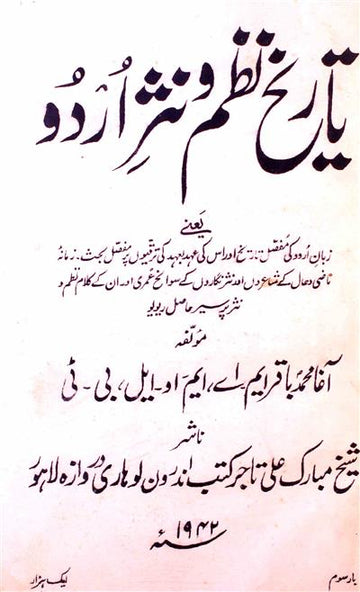 تاریخ نظم و نثرِ اُردُو
یعنے
زبان اُردو کی مفصّل تاریخ اور اس کی عہد بعہد کی ترقیوں پر مفصل بحث۔ زمانۂ
ماضی و حال کے شاعروں اور نثر نگاروں کے سوانح عمری اور ان کے کلام نظم و
نثر پر سیر حاصل ریویو
مؤلفہ
آغا محمّد باقر ایم۔اے، ایم او۔ایل، بی۔ٹی
ناشر
شیخ مبارک علی تاجر کتب اندرون لوہاری دروازہ لاہور
سنہ ۱۹۴۲ء
بار سوم
ایک ہزار